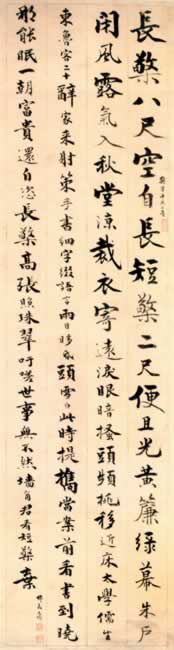 長檠八尺空自長短檠二尺便且光黃簾綠幕朱戶
閉風露氣入秋堂涼裁衣寄遠淚眼暗搔頭頻挑移近床太學儒生
東魯客二十辭家來射策夜書細字綴語言兩目眵昏頭雪白此時提攜當案前看書到曉
那能眠一朝富貴還自恣長檠高張照珠翠吁嗟世事無不然墻角君看短檠棄